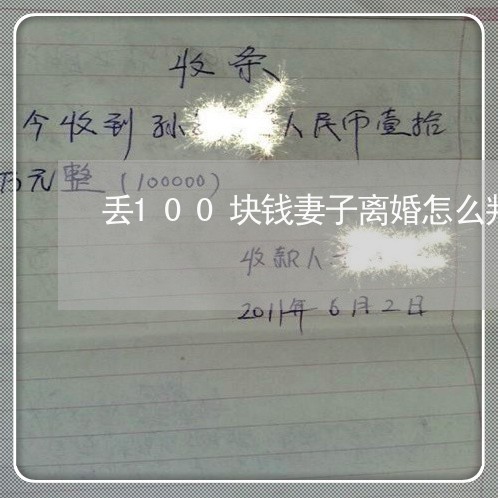 收条
今收到孙 人民币壹拾
万元整(100000)
丢100块钱妻子离婚怎么判
收款人
2011年6月2日